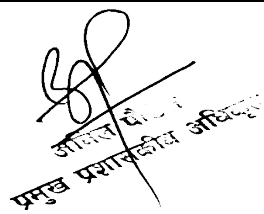 अनिल
प्रमुख प्रशासकीय अधिकृत